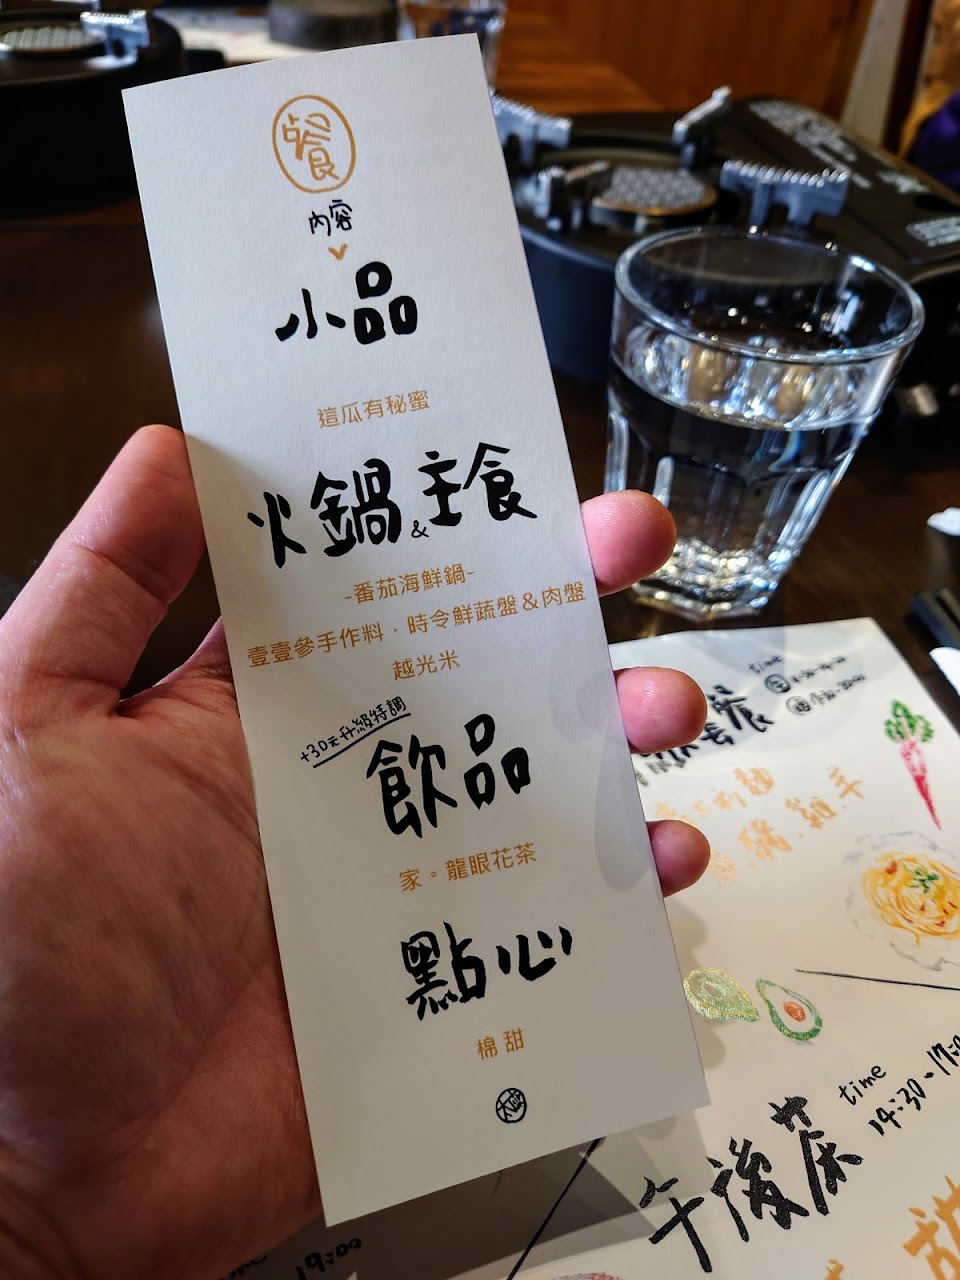 餐
內容
小品
這瓜有秘蜜
火鍋&主食
-番茄海鮮鍋-
壹壹參手作料．時令鮮蔬盤＆肉盤
越光米
+30元升級特調
飲品
家。龍眼花茶
點心
棉甜
time
午後茶
time
14:30、17:0
19:00